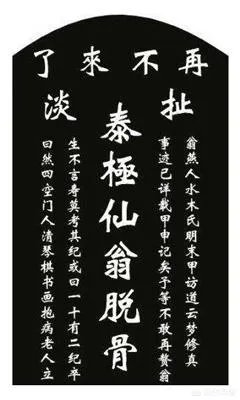 再不來了
扯淡
翁燕人水木氏明末甲访道云梦修真
事迹已详载甲申记矣予等不敢再赘翁
泰極仙翁脱骨
生不言寿莫考其纪或曰一十有二纪卒
曰然四空门人清琴棋书画抱病老人立